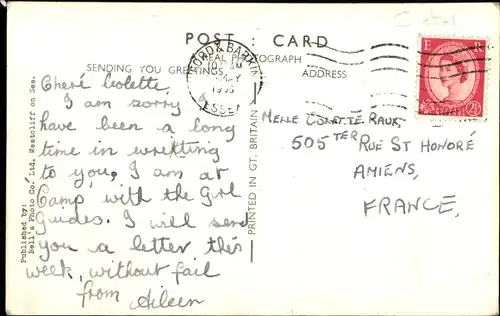 POST CARD
REAL PHOTOGRAPH
SENDING YOU GREETINGS
ADDRESS
FORD & BARKIN
ESSEX
E R
2½
Cheré Colette,
I am sorry
have been a long
time in writting
to you, I am at
Camp, with the Girl
Guides. I will send
you a letter this
week, without fail
from Aileen
Melle Colette Raux,
505 TER RUE ST HONORÉ
AMIENS,
FRANCE,
PRINTED IN GT. BRITAIN
Published by:
Bell's Photo Co. Ltd. Westcliff on Sea.